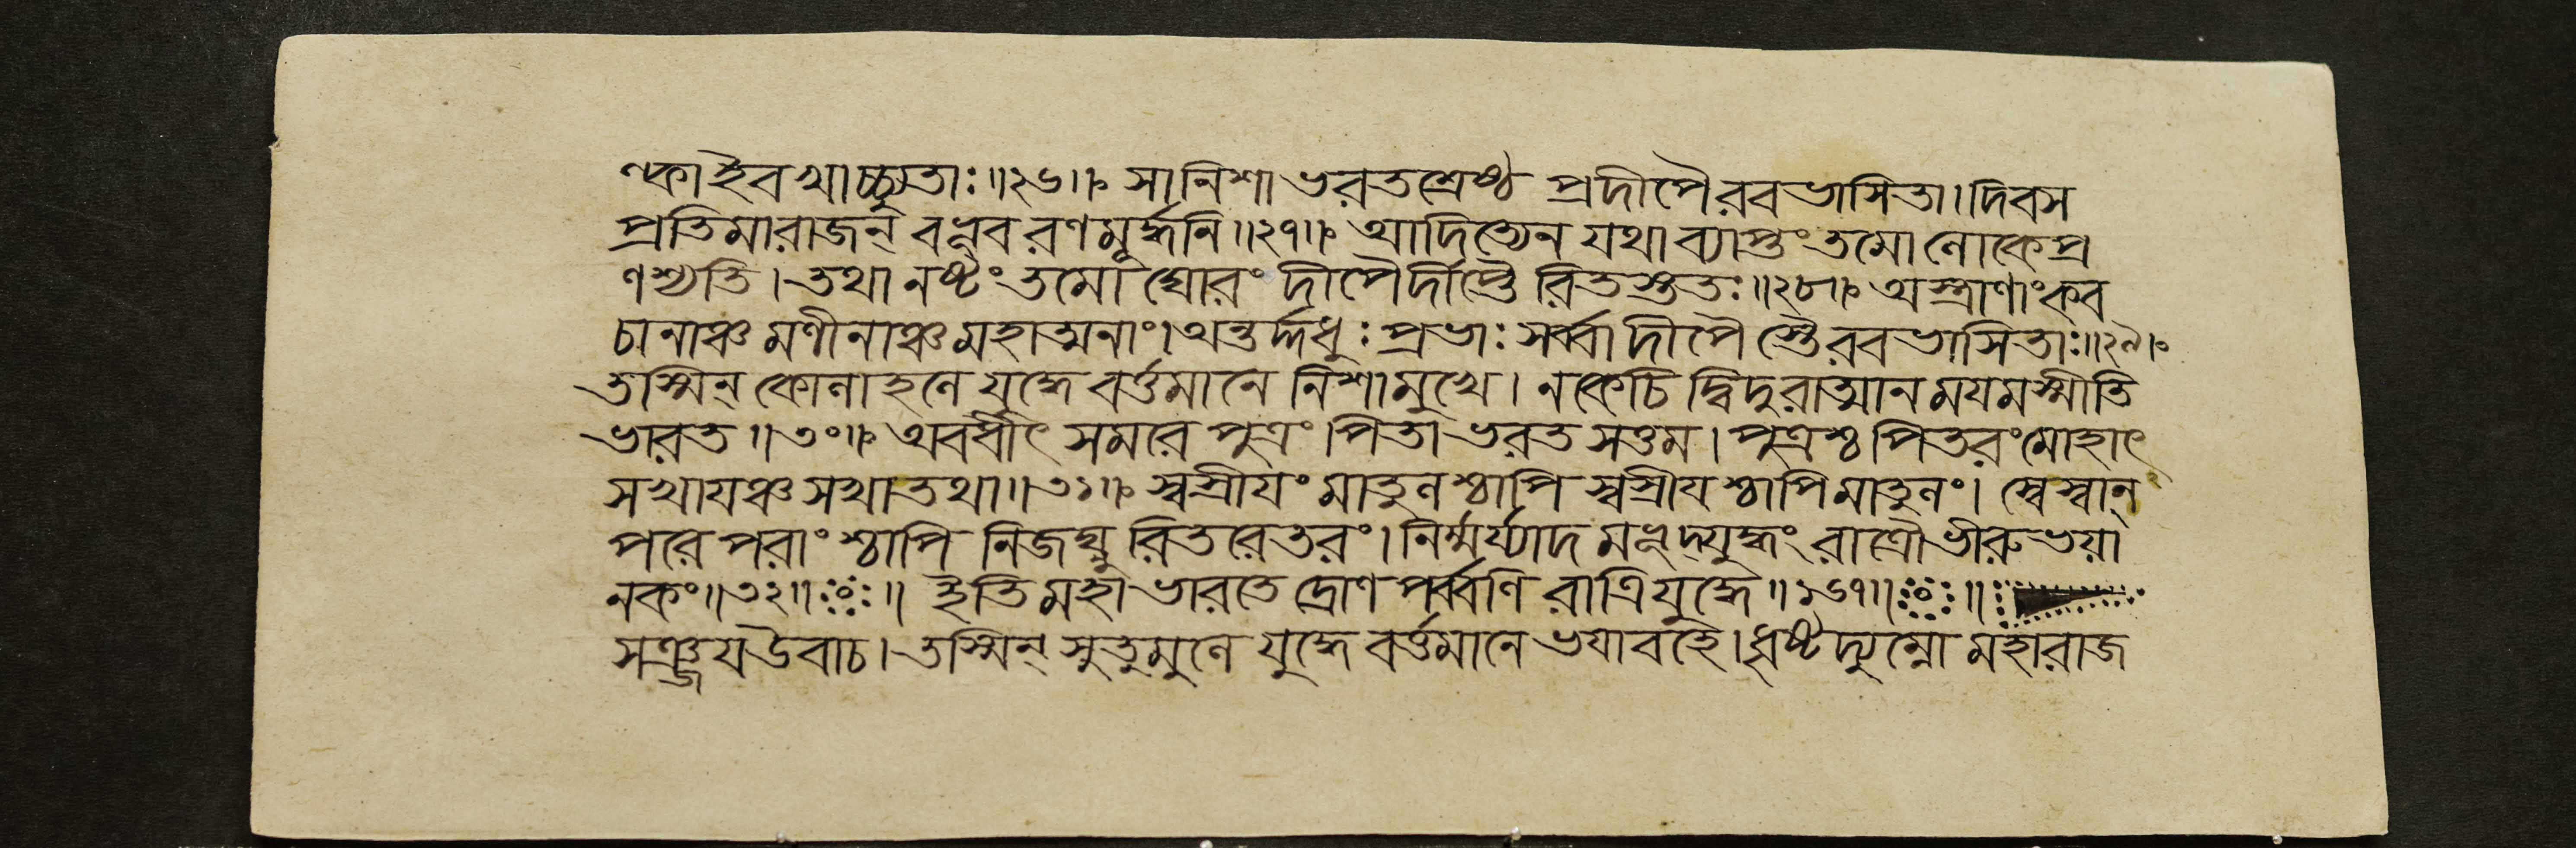 ল্কা ইব খাচ্চ্যুতাঃ॥২৬॥ সা নিশা ভরতশ্রেষ্ঠ প্রদীপৈরবভাসিতা। দিবস
প্রতিমা রাজন্ বভূব রণমূর্দ্ধনি॥২৭॥ আদিত্যেন যথা ব্যাপ্তং তমো লোকে প্র
ণশ্যতি। তথা নষ্টং তমো ঘোরং দীপৈর্দীপ্তৈরিতস্ততঃ॥২৮॥ অস্ত্রাণাং কব
চানাঞ্চ মণীনাঞ্চ মহাত্মনাং। অন্তর্দ্দধুঃ প্রভাঃ সর্ব্বা দীপৈস্তৈরবভাসিতাঃ॥২৯॥
তস্মিন্ কোলাহলে যুদ্ধে বর্ত্তমানে নিশামুখে। ন কেচিদ্বিদুরাত্মানময়মস্মীতি
ভারত॥৩০॥ অবধীৎ সমরে পুত্রং। পিতা ভরতসত্তম। পুত্রশ্চ পিতরং মোহাৎ
সখায়ঞ্চ সখা তথা॥৩১॥ স্বস্রীয়ং মাতুলশ্চাপি স্বস্রীয়শ্চাপি মাতুলং। স্বে স্বান্
পরে পরাংশ্চাপি নিজঘ্নুরিতরেতরং। নির্ম্মর্য্যাদমভূদ্যুদ্ধং রাত্রৌ ভীরুভয়া
নকং॥৩২॥ ॥ ইতি মহাভারতে দ্রোণপর্ব্বণি রাত্রিযুদ্ধে॥১৬৭॥ ॥
সঞ্জয় উবাচ। তস্মিন্ সুতুমুলে যুদ্ধে বর্ত্তমানে ভয়াবহে। ধৃষ্টদ্যুম্নো মহারাজ